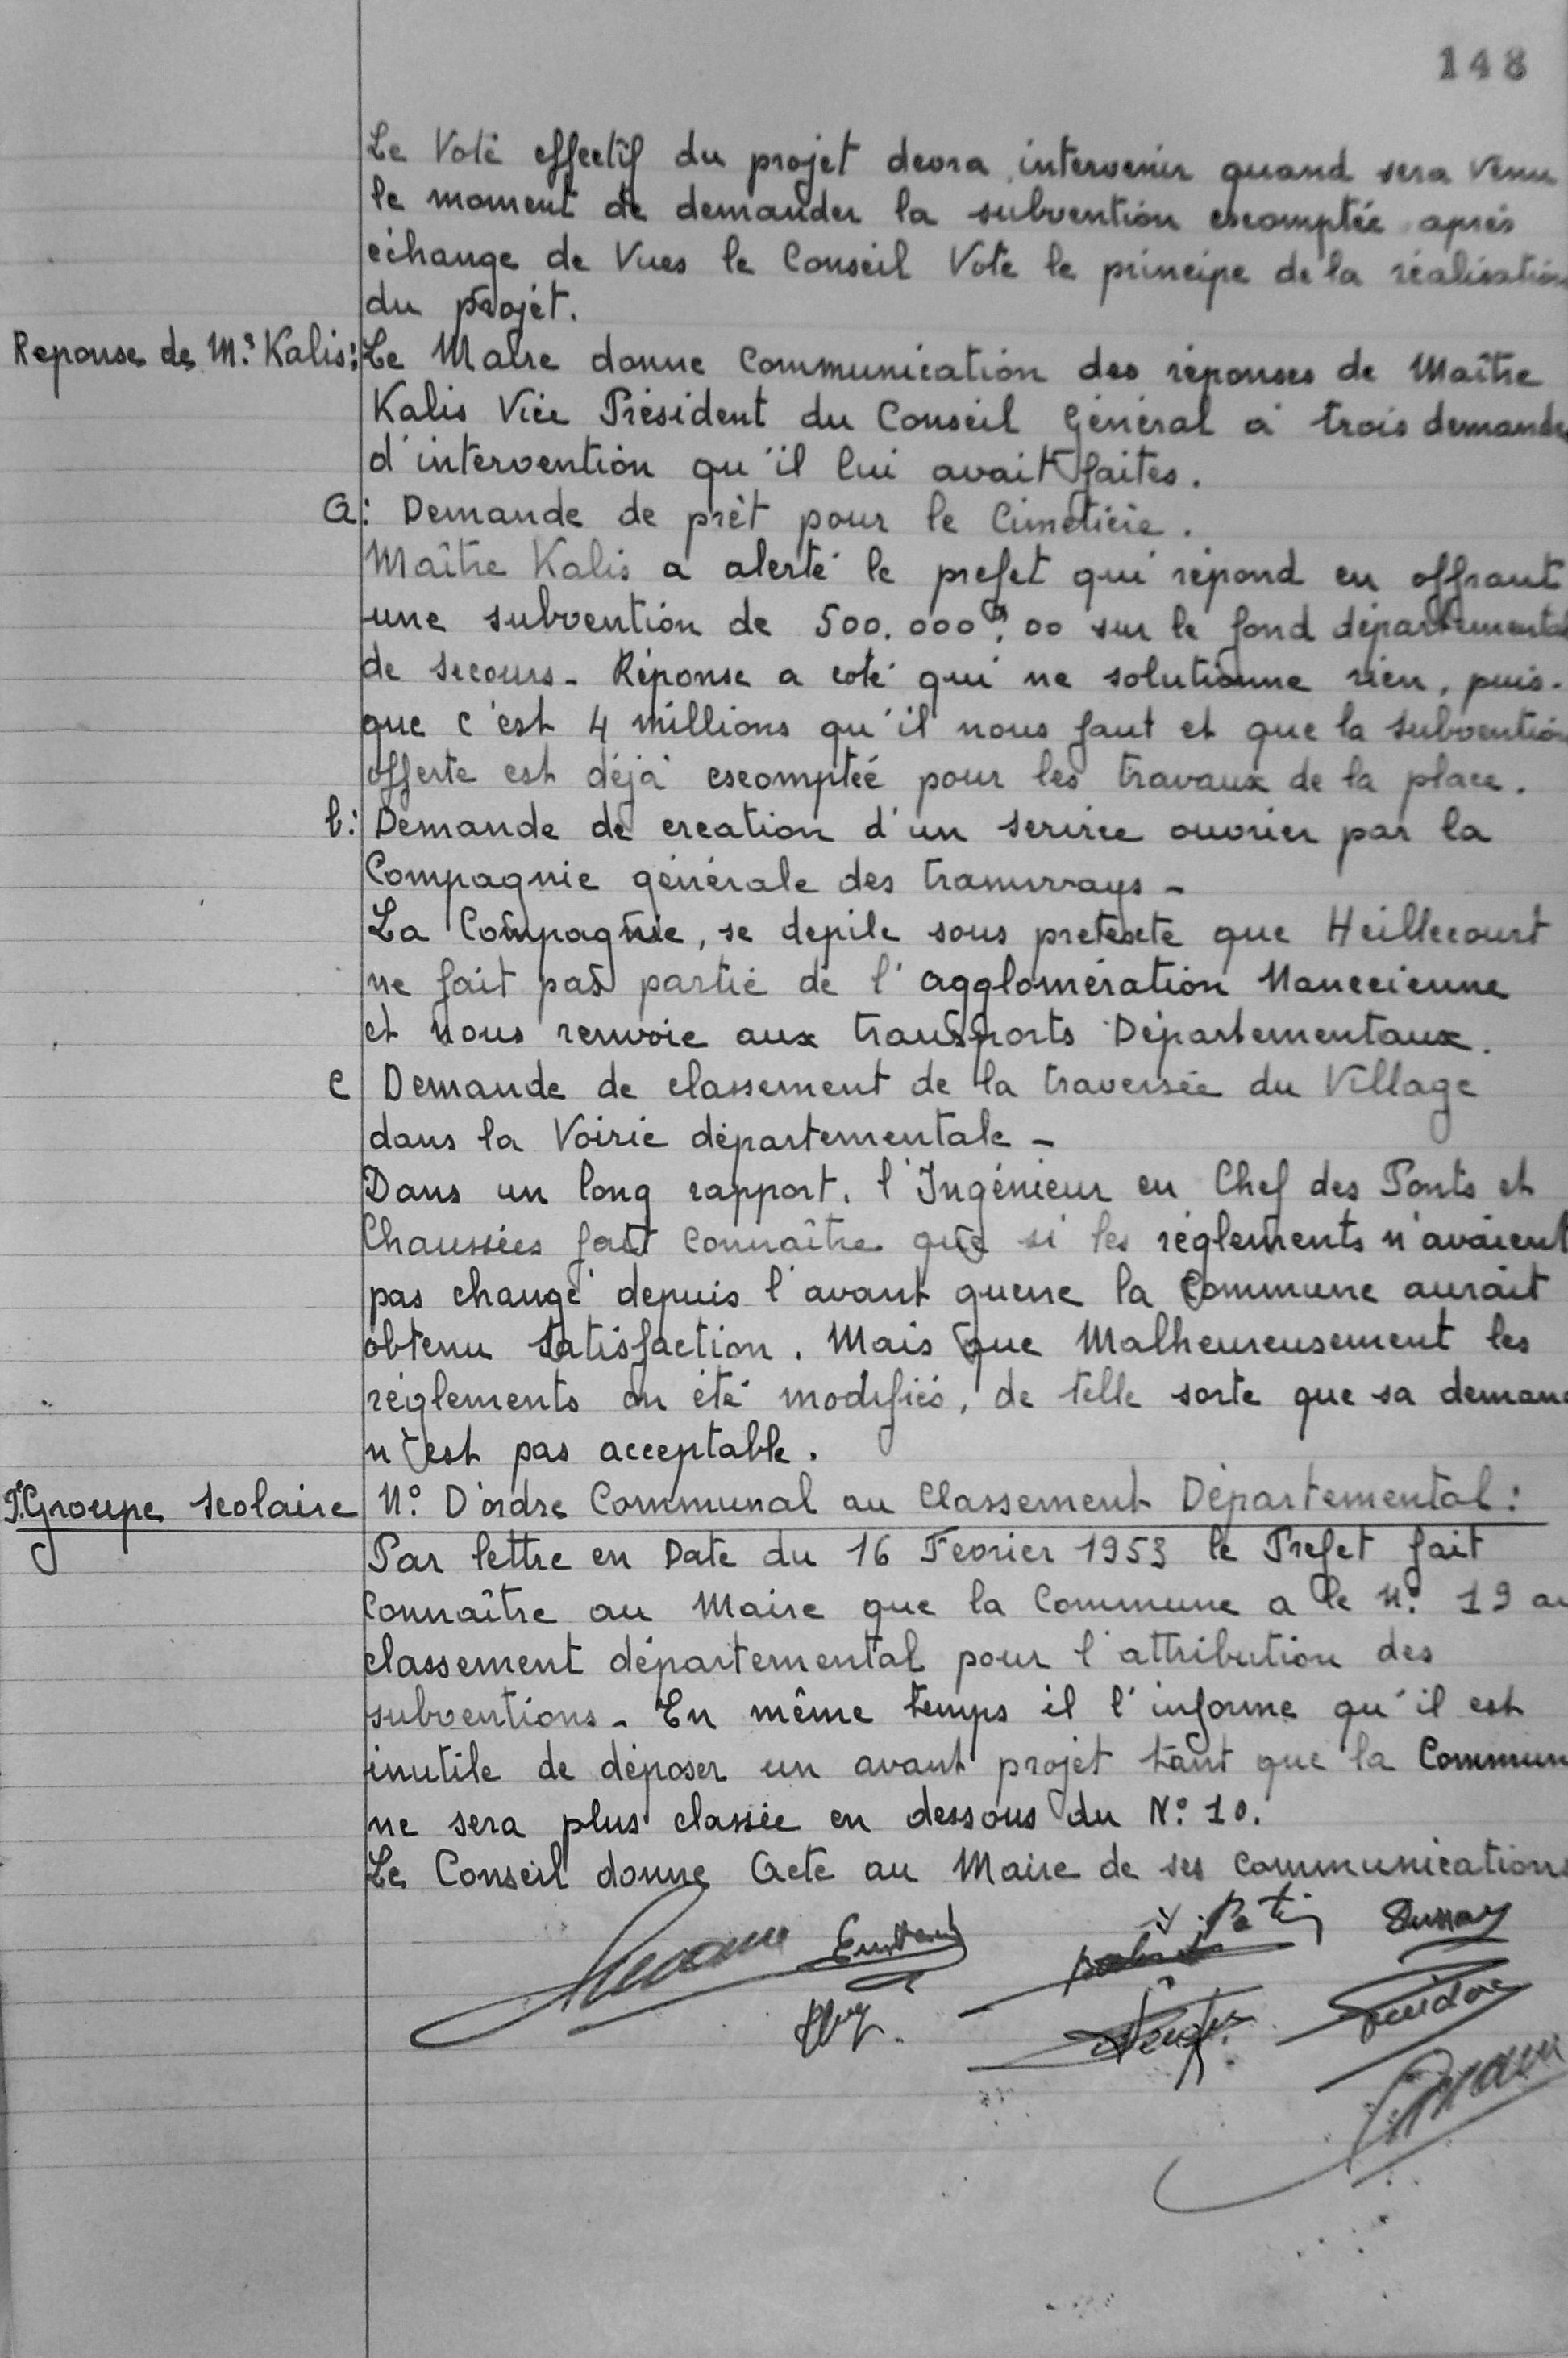 148
Le Vote effectif du projet devra intervenir quand sera venu
le moment de demander la subvention escomptée après
échange de Vues le Conseil Vote le principe de la réalisation
du projet.
Reponse de M.e Kalis: Le Maire donne Communication des réponses de Maître
Kalis Vice Président du Conseil Général à trois demandes
d'intervention qu'il lui avait faites.
a: Demande de prêt pour le Cimetière.
Maître Kalis a alerté le prefet qui répond en offrant
une subvention de 500.000frs,00 sur le fond départemental
de secours - Réponse a coté qui ne solutionne rien, puis-
que c'est 4 millions qu'il nous faut et que la subvention
offerte est déjà escomptée pour les travaux de la place.
b: Demande de creation d'un service ouvrier par la
Compagnie générale des tramways -
La Compagnie, se defile sous pretexte que Heillecourt
ne fait pas partie de l'agglomération Nanceienne
et nous renvoie aux transports Départementaux.
c Demande de classement de la traversée du Village
dans la Voirie départementale -
Dans un long rapport, l'Ingénieur en Chef des Ponts et
Chaussées fait Connaître que si les réglements n'avaient
pas changé depuis l'avant guerre la Commune aurait
obtenu satisfaction. Mais que Malheureusement les
réglements on été modifiés, de telle sorte que sa deman
n'est pas acceptable.
Groupe scolaire N° D'ordre Communal au Classement Départemental:
Par lettre en Date du 16 Fevrier 1953 le Prefet fait
Connaître au Maire que la Commune a le N° 19 au
classement départemental pour l'attribution des
subventions - En même temps il l'informe qu'il est
inutile de déposer un avant projet tant que la Commun
ne sera plus classée en dessous du N° 10.
Le Conseil donne Acte au Maire de ses communications